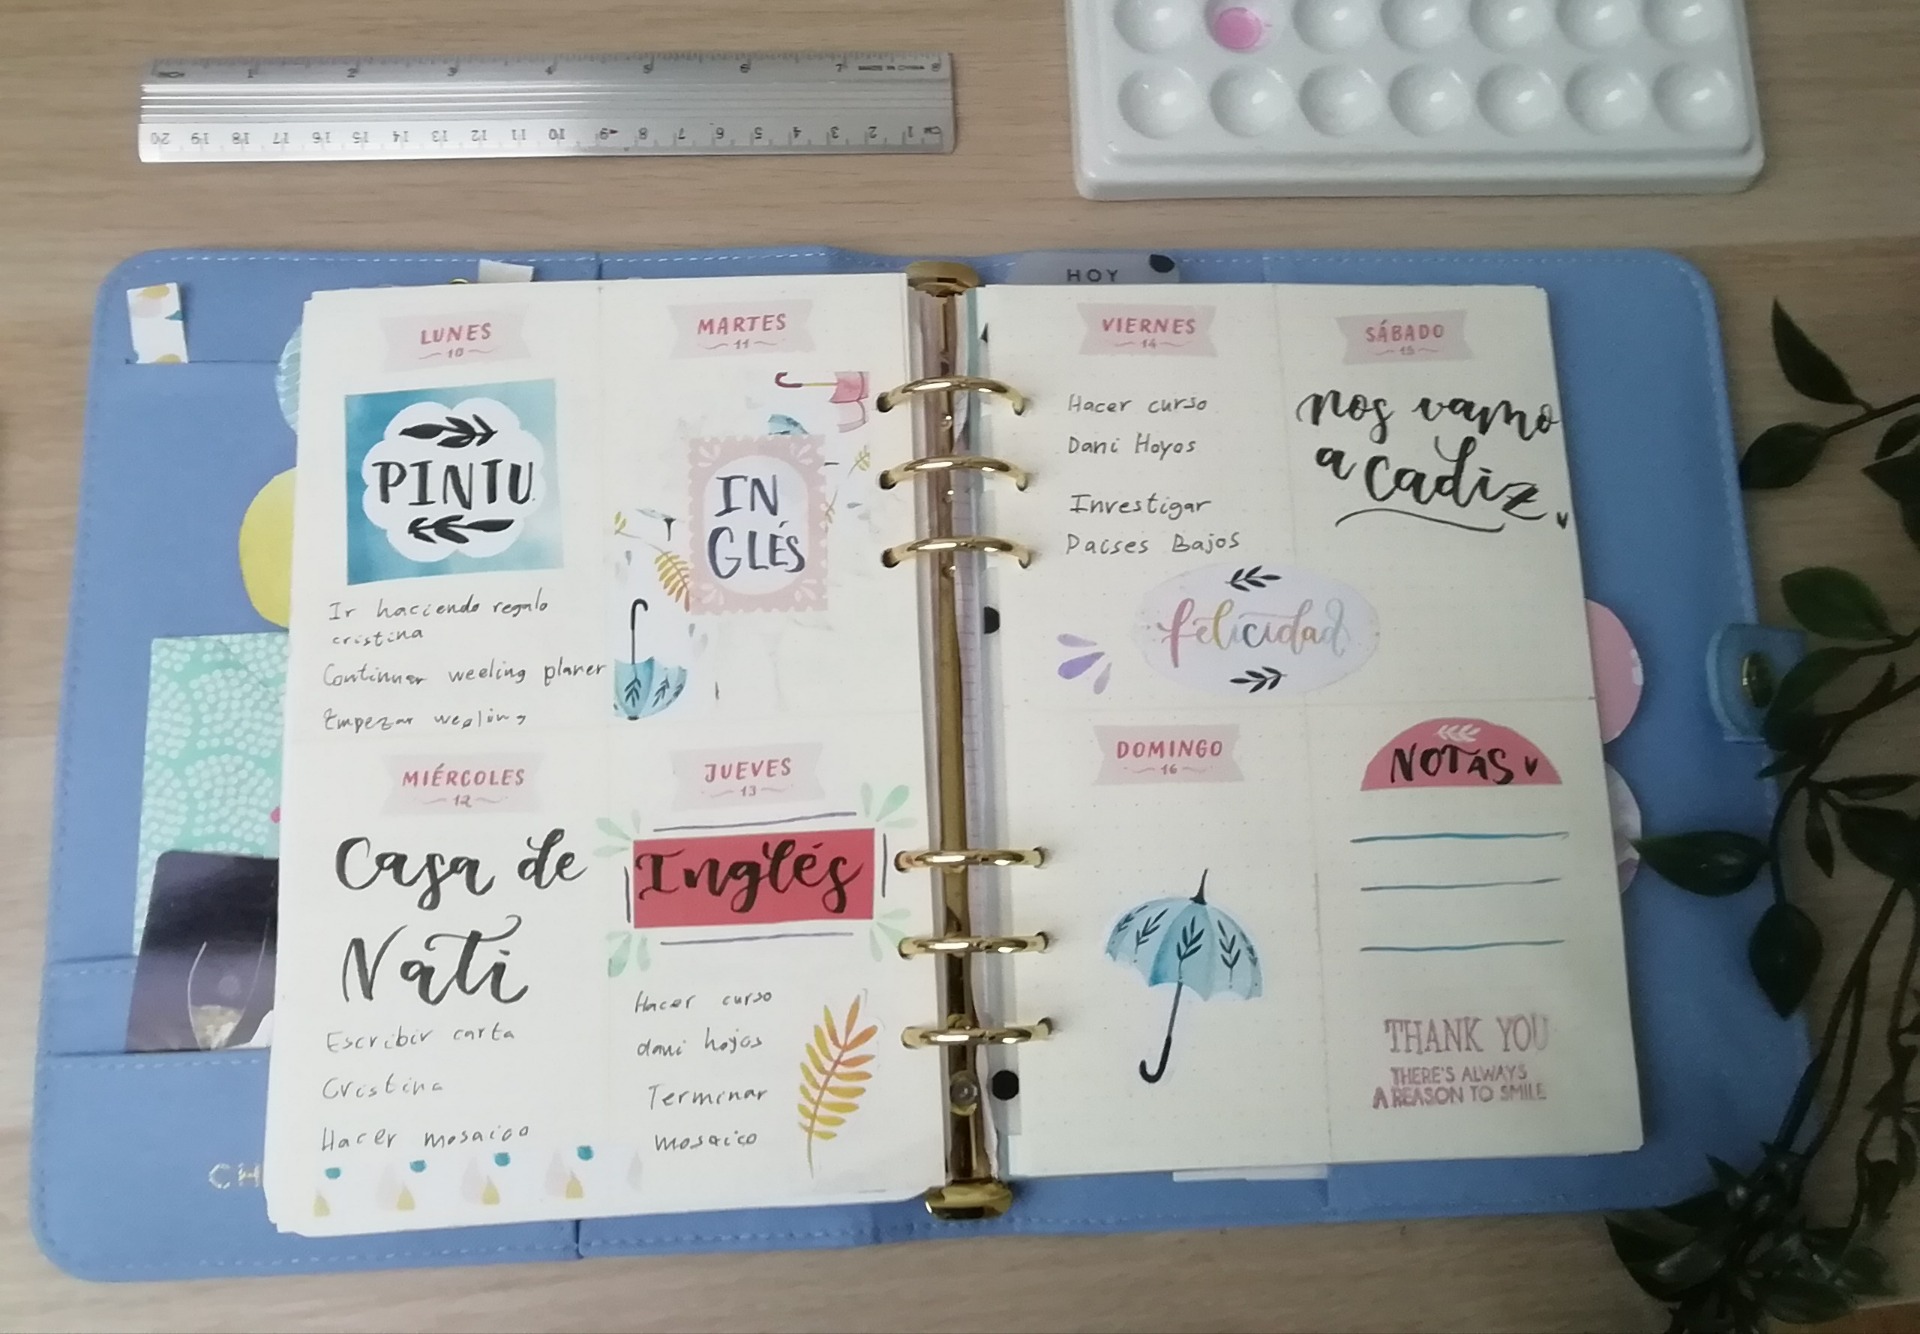 INCH 1 2 3 4 5 6 7 8
20 19 18 17 16 15 14 13 12 11 10 9 8 7 6 5 4 3 2 1 CM
HOY
LUNES
10
PINTU
Ir haciendo regalo
cristina
Continuar weeling planer
Empezar
MARTES
11
IN
GLÉS
MIÉRCOLES
12
Casa de
Nati
Escribir carta
Cristina
Hacer mosaico
JUEVES
13
Inglés
Hacer curso
dani hoyos
Terminar
mosaico
VIERNES
14
Hacer curso
Dani Hoyos
Investigar
Paises Bajos
felicidad
SÁBADO
15
nos vamo
a Cadiz
DOMINGO
16
NOTAS
THANK YOU
THERE'S ALWAYS
A REASON TO SMILE
CH